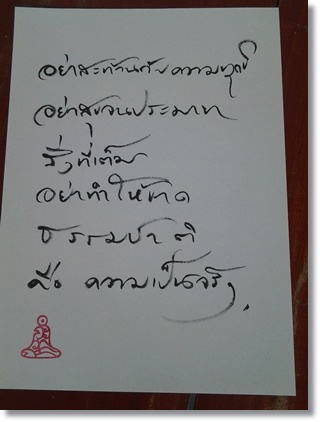 อย่าสะท้านกับความทุกข์
อย่าสุขจนประมาท
สิ่งที่เต็ม
อย่าทำให้ขาด
ธรรมชาติ
คือ ความเป็นจริง.